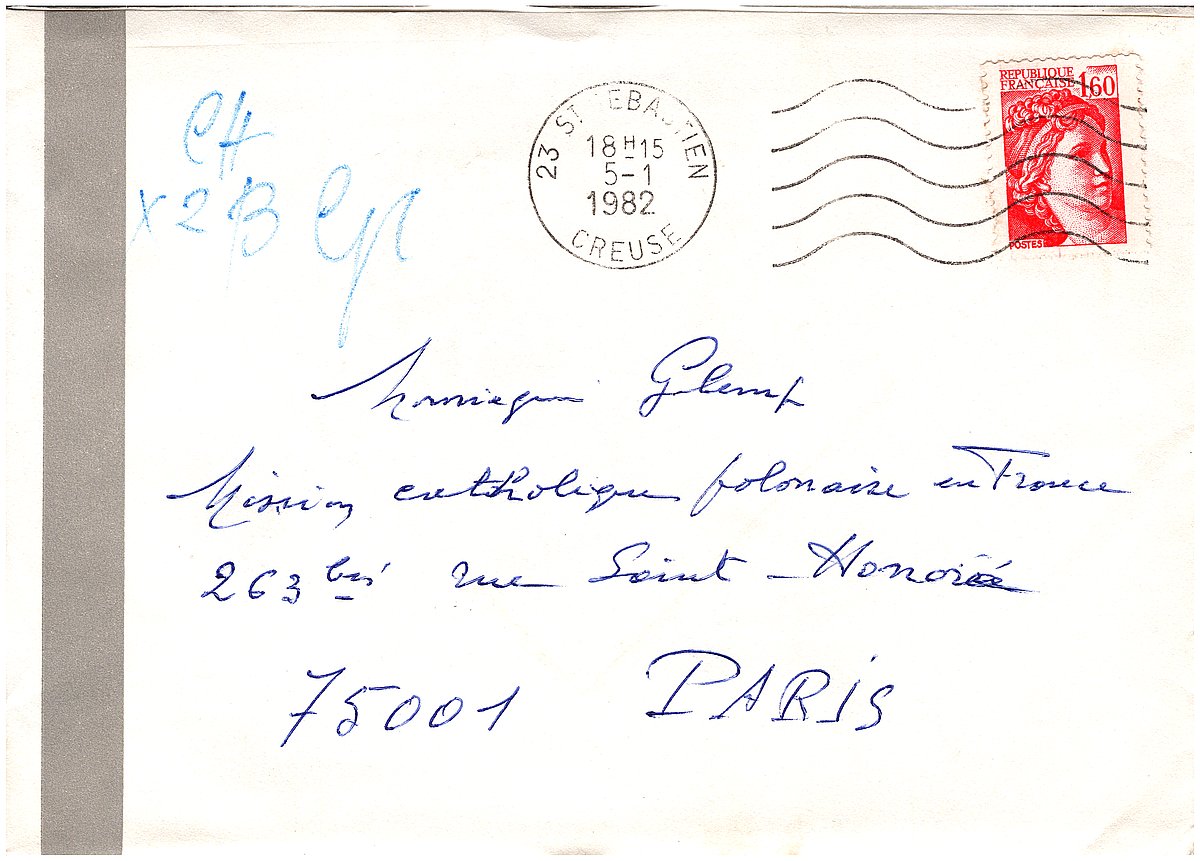 REPUBLIQUE
FRANÇAISE 1,60
POSTES
23 ST SEBASTIEN
18H15
5-1
1982
CREUSE
CH
x2B
Monseigneur Glemp
Mission catholique polonaise en France
263 bis rue Saint-Honoré
75001 PARIS